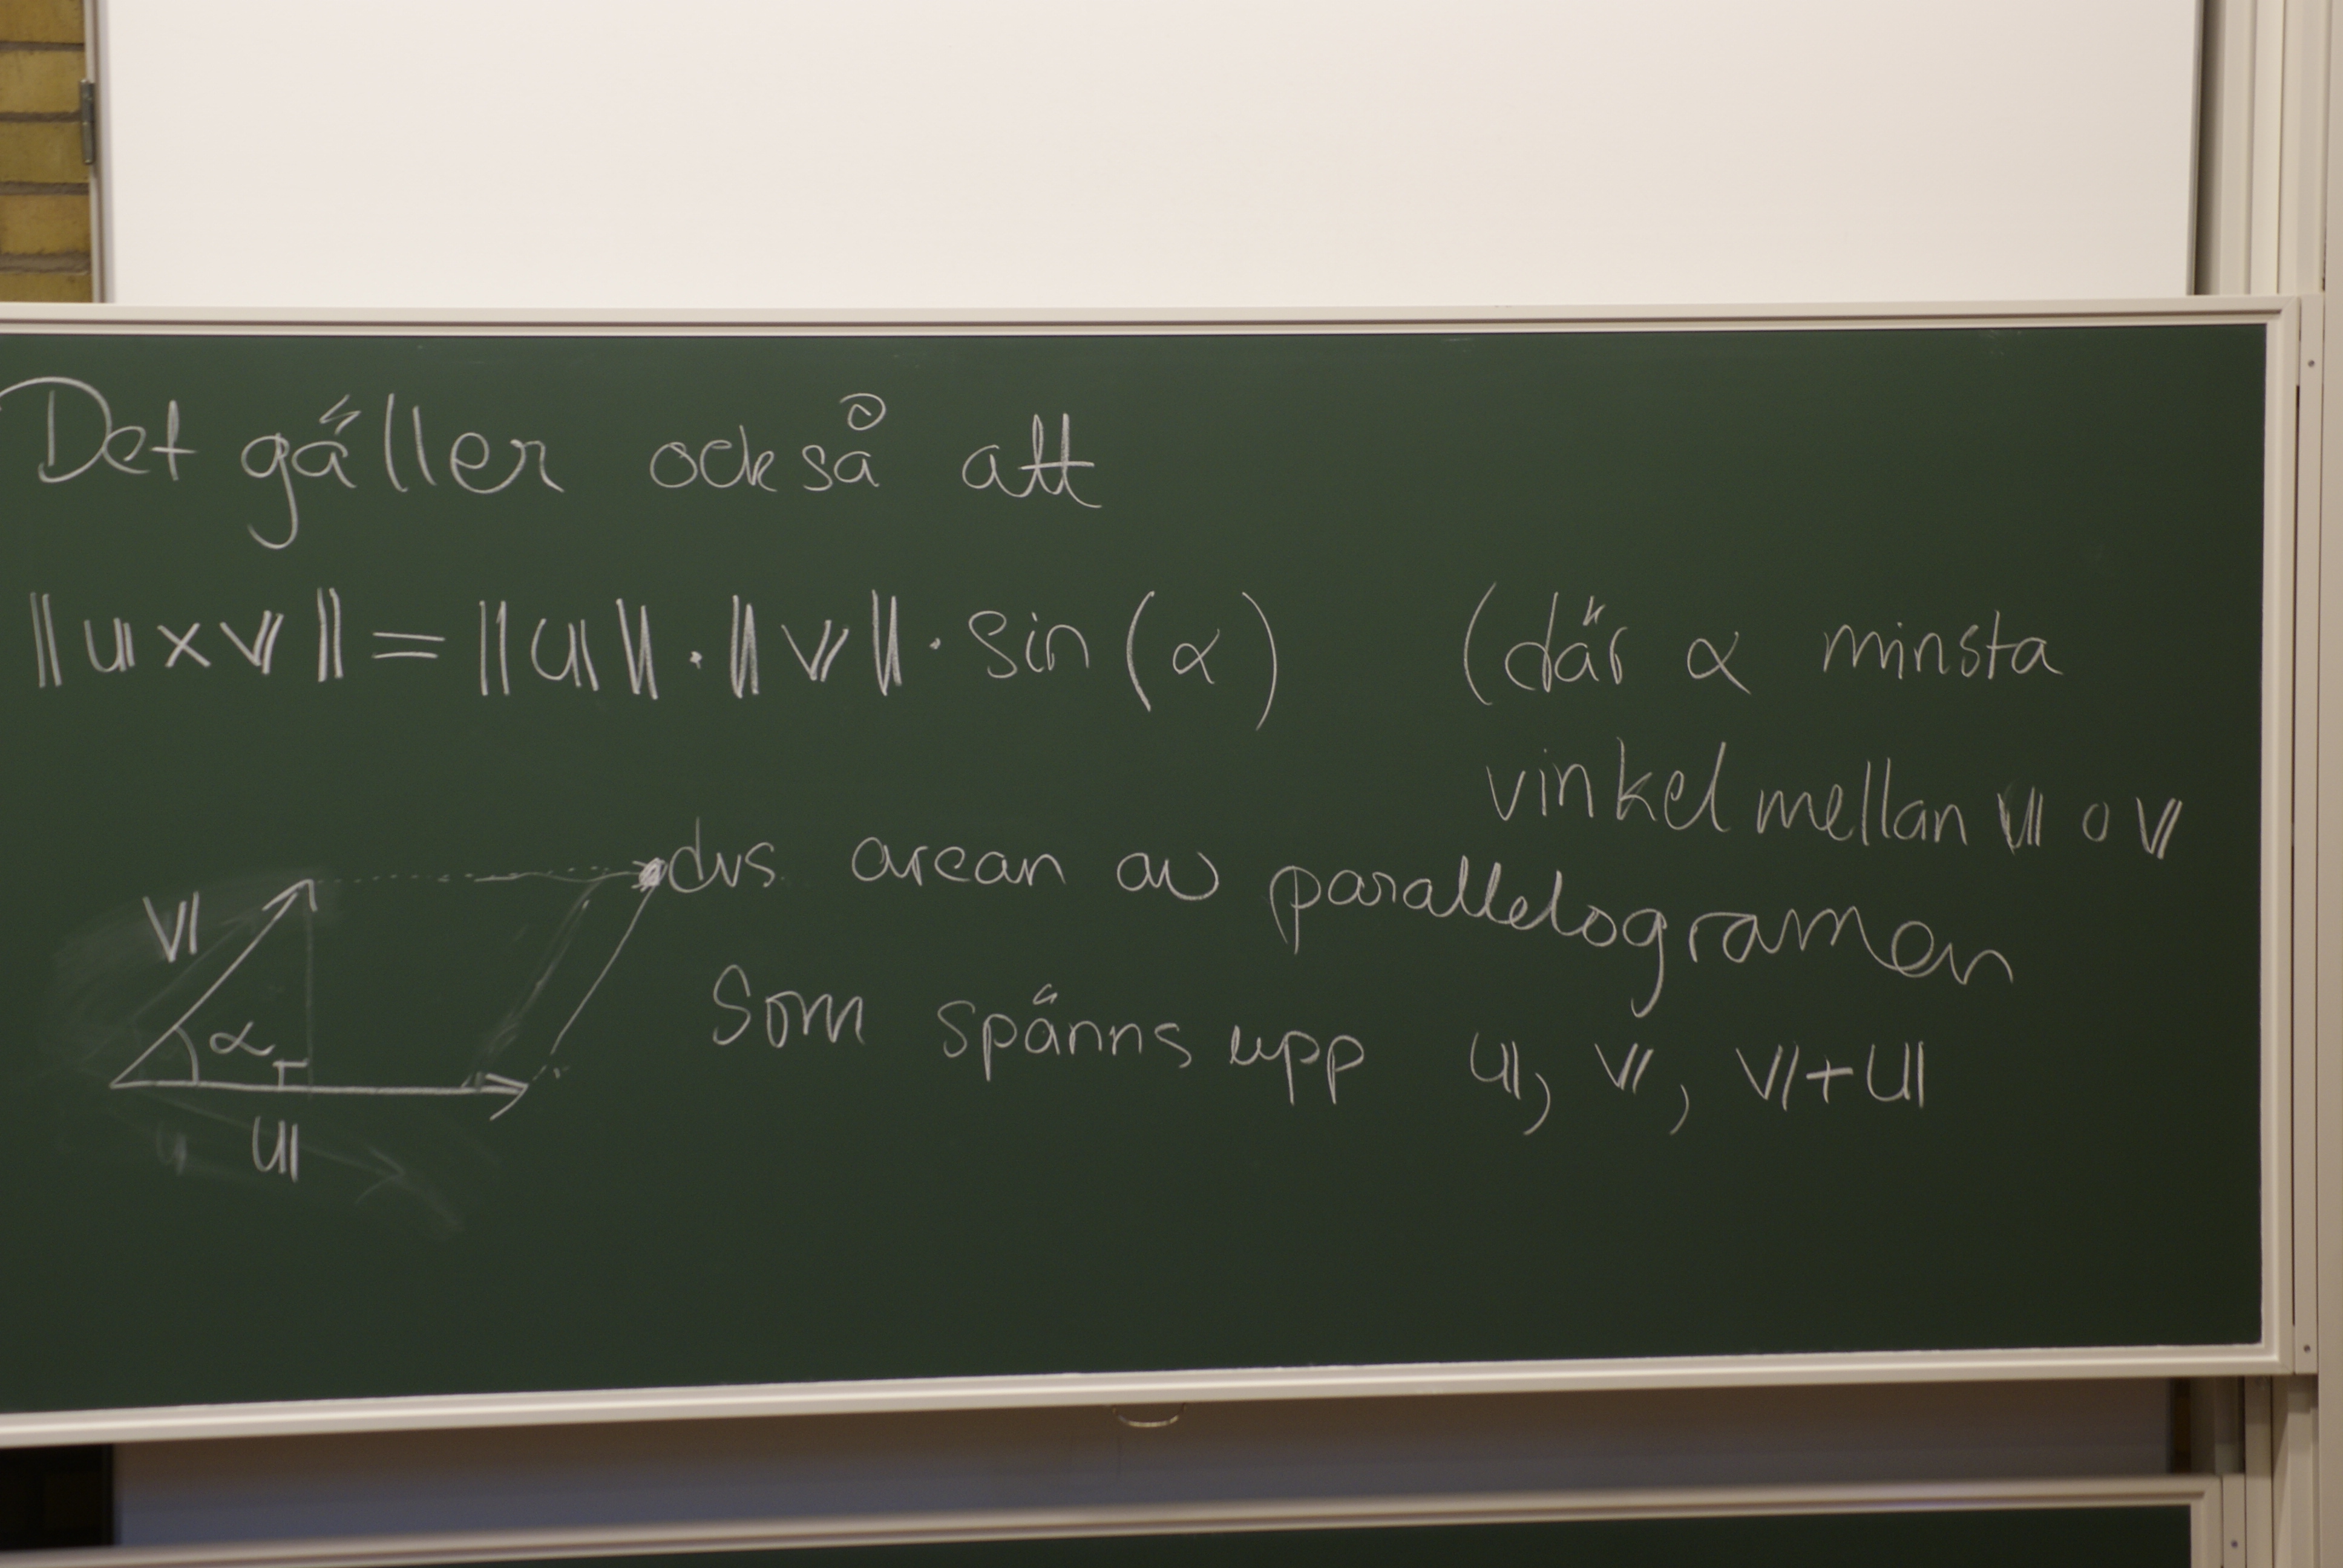 Det gäller också att
||𝕦×𝕧|| = ||𝕦||·||𝕧||·sin(α) (där α minsta
vinkel mellan 𝕦 o 𝕧
dvs arean av parallellogramen
som spänns upp 𝕦, 𝕧, 𝕧+𝕦
𝕧
α
𝕦